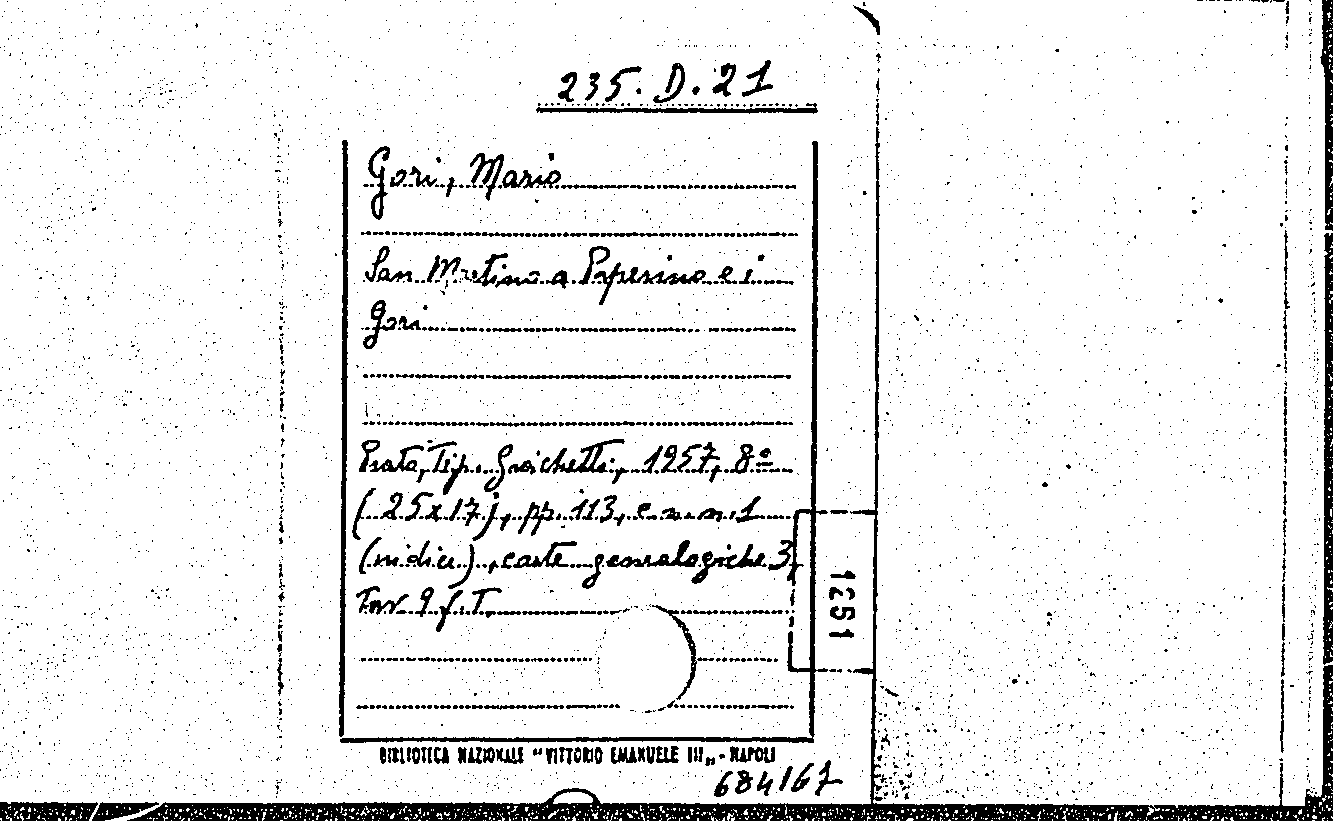 235. D. 21
Gori, Mario
San Martino a Paperino e i
Gori
Prato, Tip. 1957, 8º
(25x17), pp. 113, e n. n. 1
(indice), carte genealogiche 3,
Tav 9 f. T.
1251
BIBLIOTECA NAZIONALE "VITTORIO EMANUELE III„ - NAPOLI
684167